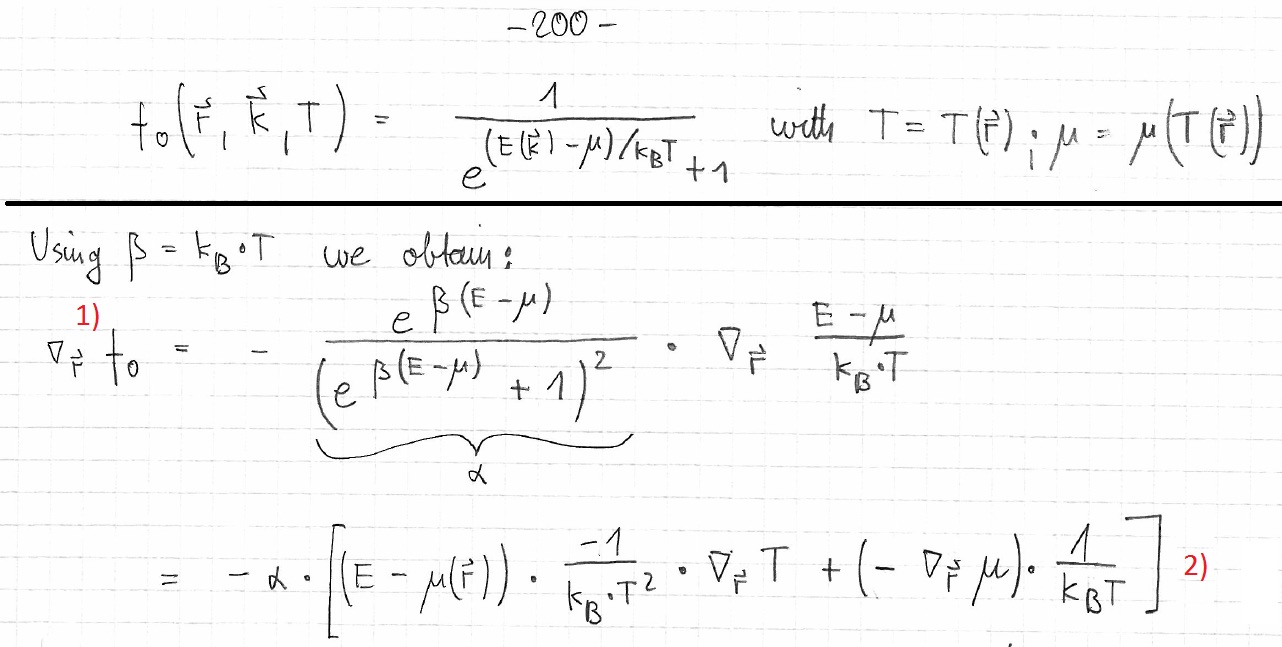 -200-
f₀(r⃗, k⃗, T) = 1 / (e^((E(k⃗)-μ)/k_BT) + 1) with T = T(r⃗); μ = μ(T(r⃗))
Using β = k_B·T we obtain:
1)
∇_r⃗ f₀ = - e^(β(E-μ)) / (e^(β(E-μ)) + 1)² · ∇_r⃗ (E-μ)/(k_B·T)
α
= -α · [(E - μ(r⃗)) · -1/(k_B·T²) · ∇_r⃗ T + (- ∇_r⃗ μ) · 1/(k_BT)] 2)